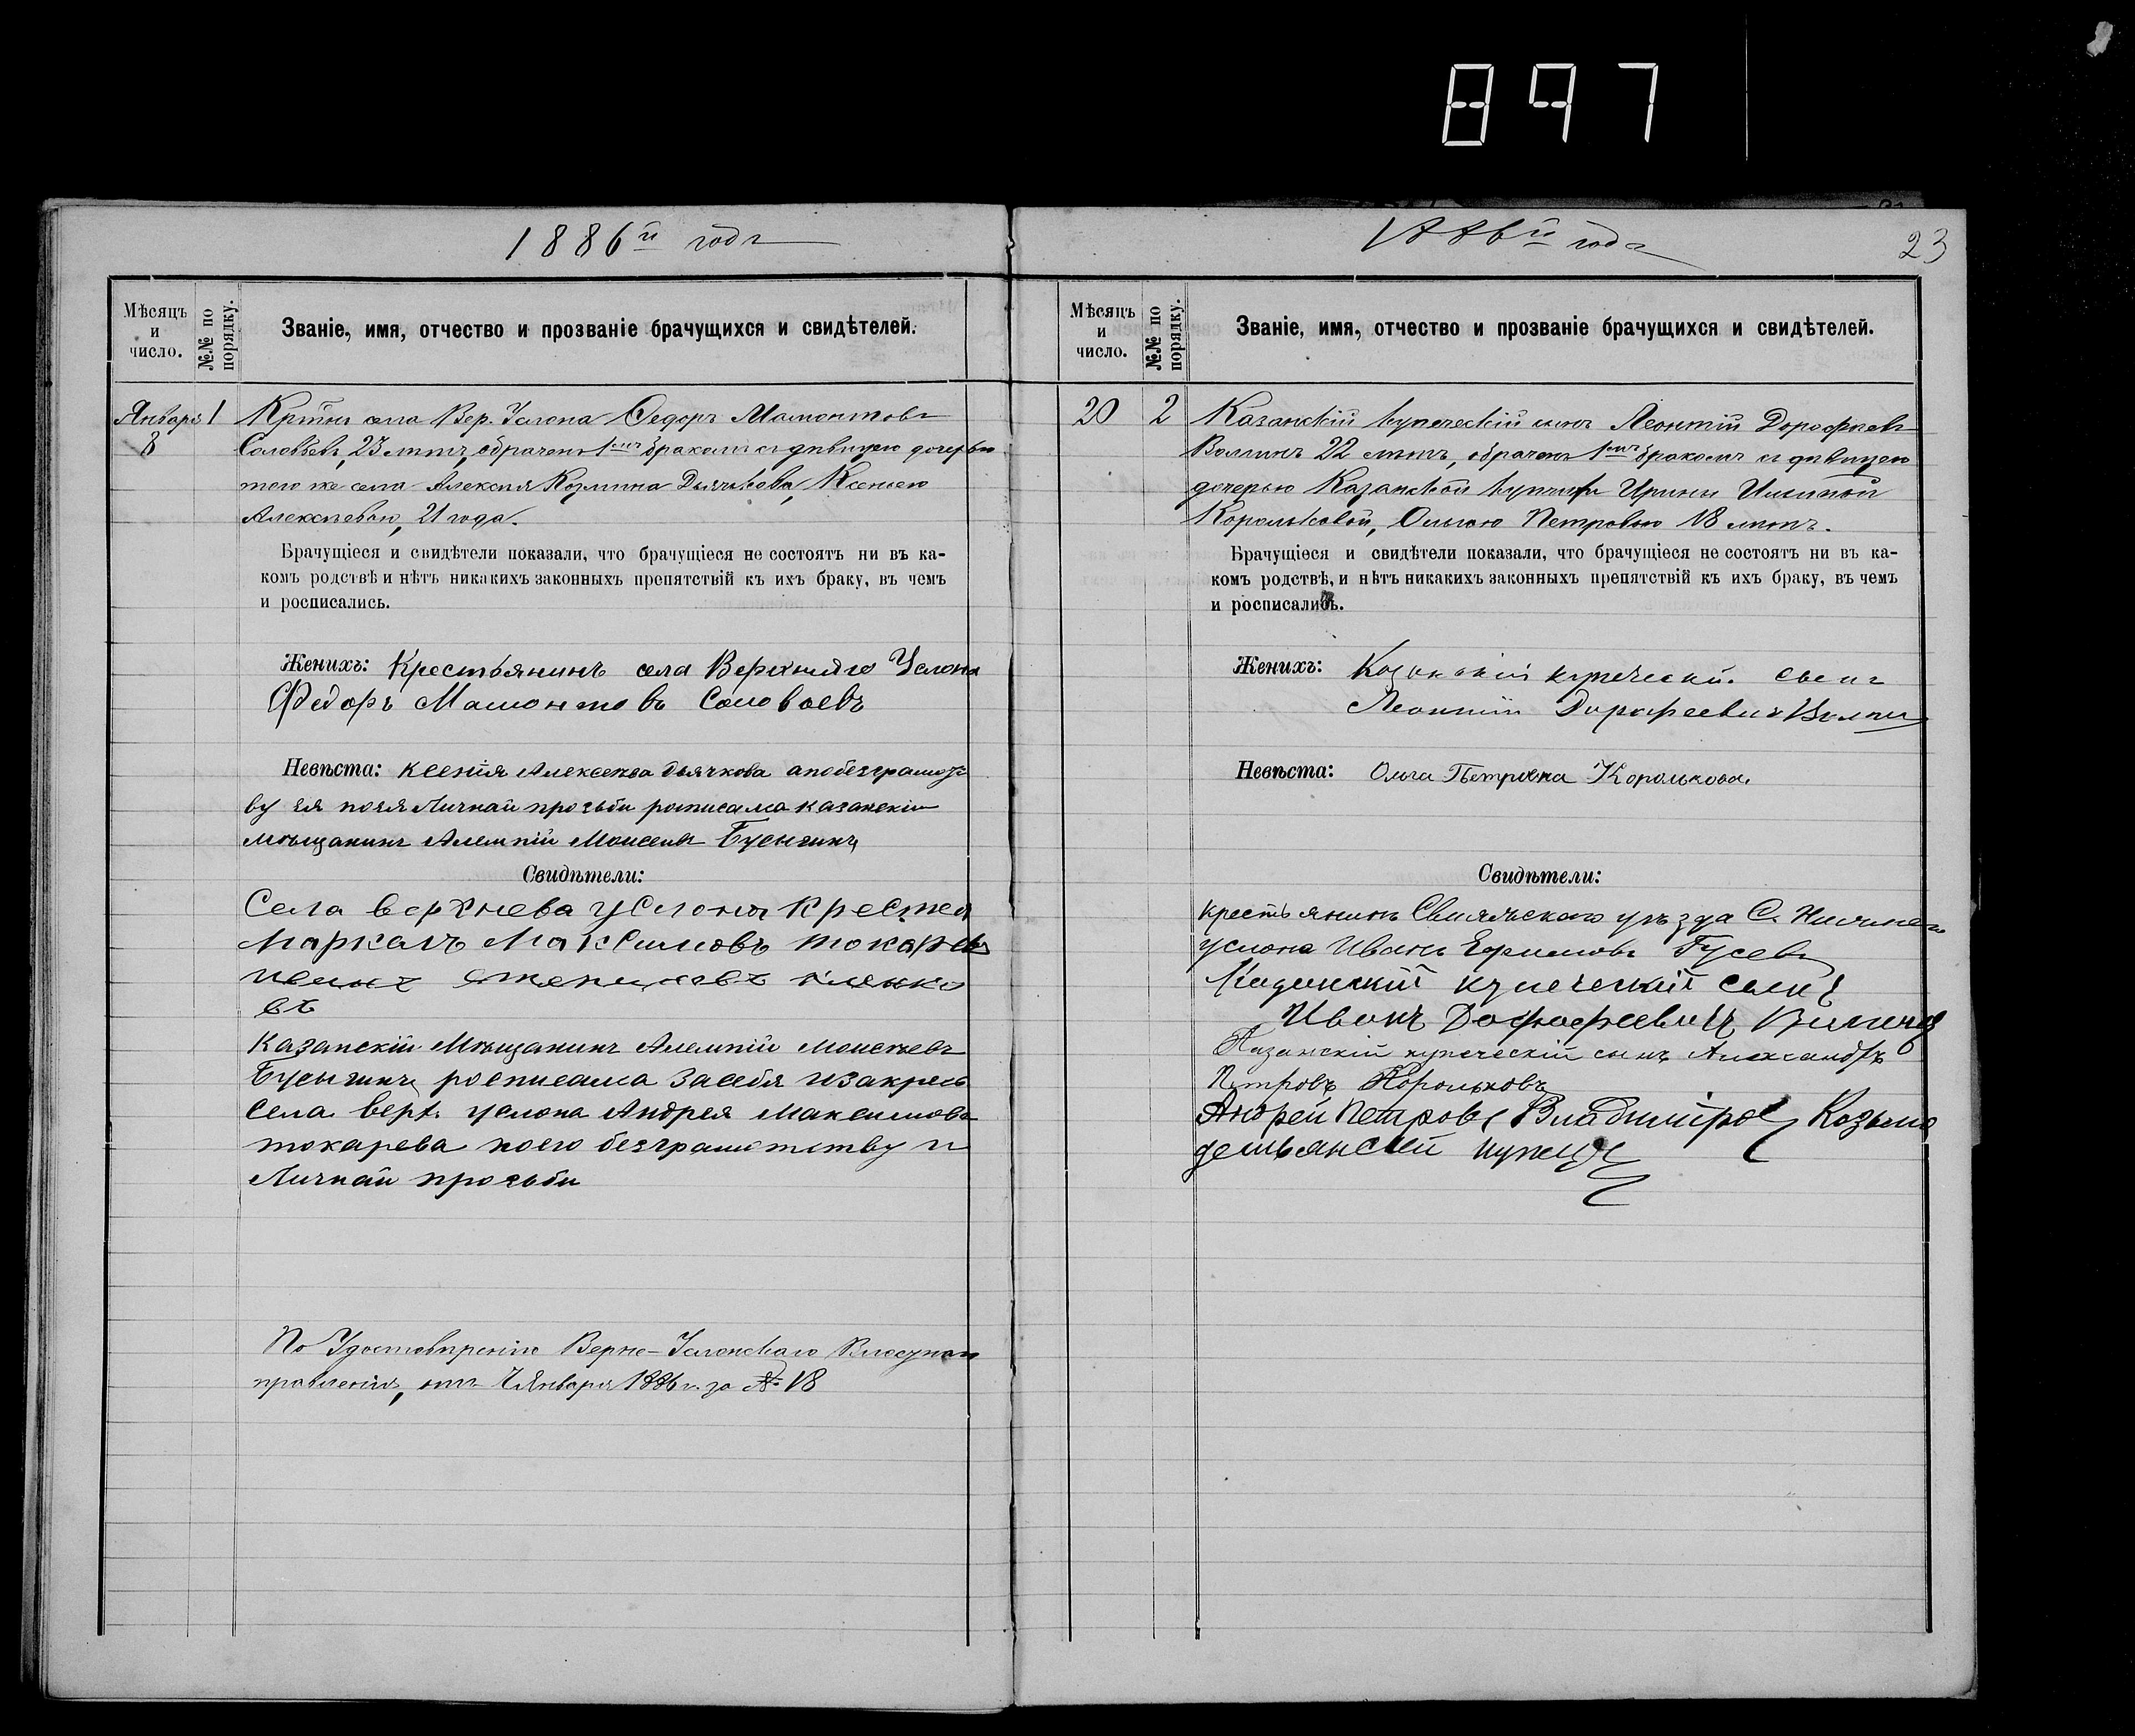 897
1886й годъ
Мѣсяцъ и число.
№№ по порядку.
Званіе, имя, отчество и прозваніе брачущихся и свидѣтелей.
Января 8
1
Кртнъ села Вер. Услона Ѳедоръ Мамонтовъ
Соловьевъ, 23 лѣтъ, обраченъ 1мъ бракомъ съ дѣвицею дочерью
того же села Алексѣя Козмина Дьячкова, Ксеніею
Алексѣевою, 21 года.
Брачущіеся и свидѣтели показали, что брачущіеся не состоятъ ни въ ка-
комъ родствѣ и нѣтъ никакихъ законныхъ препятствій къ ихъ браку, въ чемъ
и росписались.
Женихъ: Крестьянинъ села Верхняго Услона
Федоръ Мамонтовъ Соловьевъ
Невѣста: Ксенія Алексеева Дьячкова
Личнай прозьби росписался казанскій
мѣщанинъ Алемпій Моисеевъ Бусыгинъ
Свидѣтели:
Села верхнева Услона
Маркалъ Максимовъ Токаревъ
въ
Казанскій Мѣщанинъ Алемпій Моисѣевъ
Бусыгинъ росписался засебя изакресь
села верх. услона Андрея Максимова
токарева поего безграмотству и
Личнай прозьби
По Удостовѣренію Верхне-Услонскаго Волостнаго
правленія, отъ 7 Января 1886 г. за № 18
1886й годъ
23
Мѣсяцъ и число.
№№ по порядку.
Званіе, имя, отчество и прозваніе брачущихся и свидѣтелей.
20
2
Казанскій купеческій сынъ Леонтій Дорофеевъ
22 лѣтъ, обраченъ 1мъ бракомъ съ дѣвицею
дочерью Казанской купчихи Ирины Ильиной
Корольковой, Ольгою Петровою 18 лѣтъ.
Брачущіеся и свидѣтели показали, что брачущіеся не состоятъ ни въ ка-
комъ родствѣ, и нѣтъ никакихъ законныхъ препятствій къ ихъ браку, въ чемъ
и росписались.
Женихъ: Казанскій купеческій сынъ
Леонтій Дорофеевичъ
Невѣста: Ольга Петровна Королькова.
Свидѣтели:
крестьянинъ Свіяжскаго уѣзда С. Нижнего
услона Иванъ Ефимовъ Гусевъ
Казанскій купеческій сынъ
Иванъ Дорофеевичъ
Казанскій купеческій сынъ Александръ
Петровъ Корольковъ
Андрей Петровъ Владиміровъ Козьмо
демьянскій купецъ